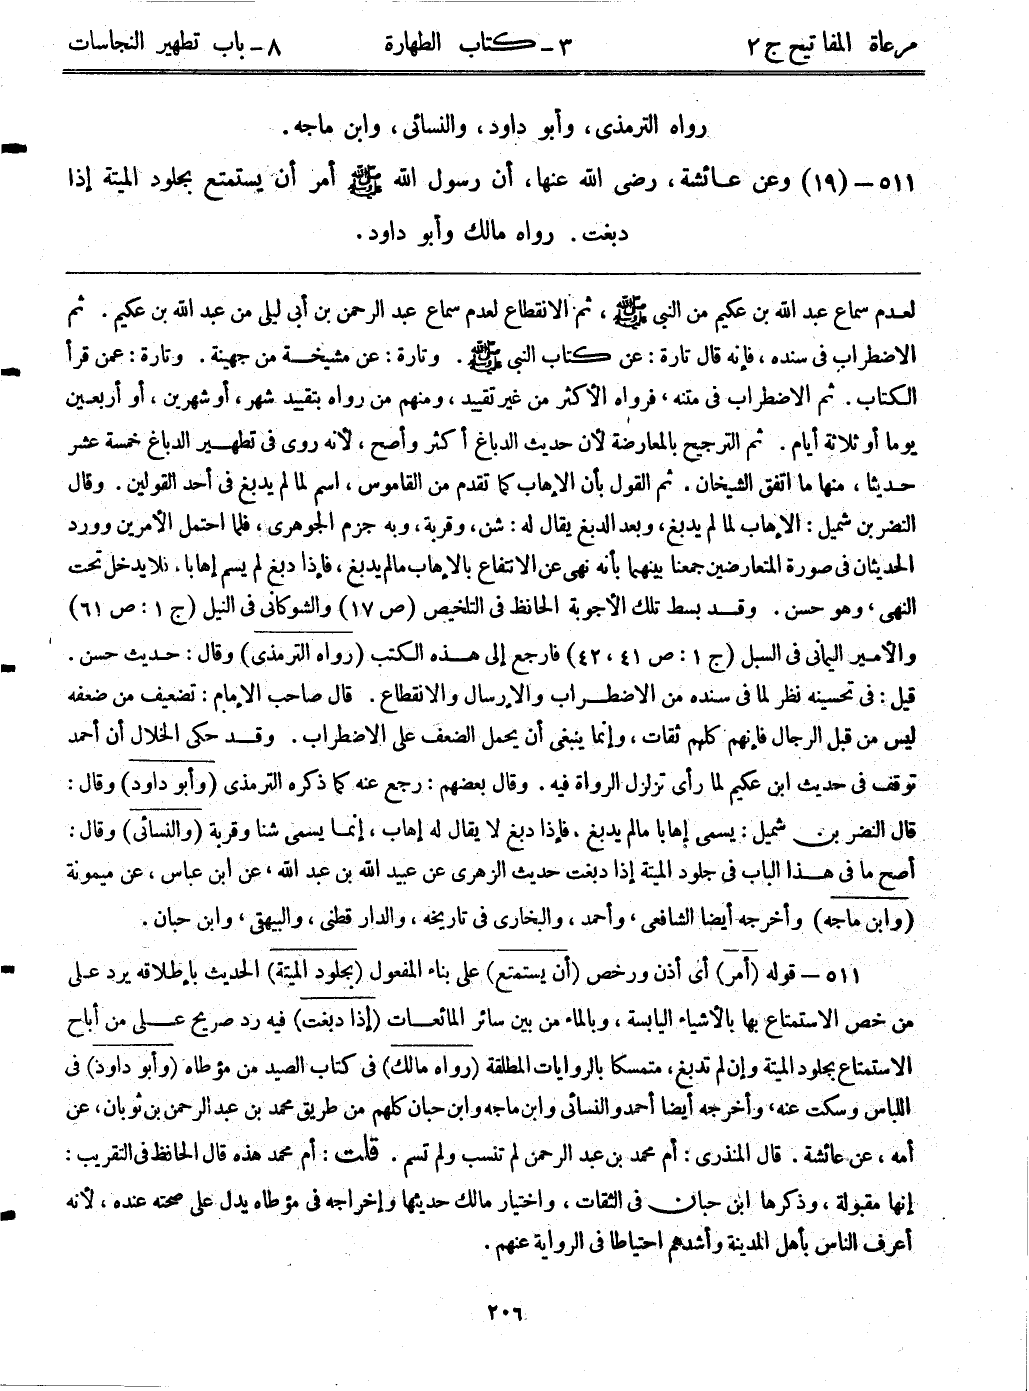 مرعاة المفاتيح ج ٢ ٣ – كتاب الطهارة ٨ – باب تطهير النجاسات
رواه الترمذى، وأبو داود، والنسائى، وابن ماجه.
٥١١ – (١٩) وعن عائشة، رضى الله عنها، أن رسول الله ﷺ أمر أن يستمتع بجلود الميتة إذا
دبغت. رواه مالك وأبو داود.
لعدم سماع عبد الله بن عكيم من النبى ﷺ، ثم الانقطاع لعدم سماع عبد الرحمن بن أبى ليلى من عبد الله بن عكيم. ثم
الاضطراب فى سنده، فإنه قال تارة: عن كتاب النبى ﷺ. وتارة: عن مشيخة من جهينة. وتارة: عمن قرأ
الكتاب. ثم الاضطراب فى متنه، فرواه الأكثر من غير تقييد، ومنهم من رواه بتقييد شهر، أو شهرين، أو أربعين
يوما أو ثلاثة أيام. ثم الترجيح بالمعارضة لأن حديث الدباغ أكثر وأصح، لأنه روى فى تطهير الدباغ خمسة عشر
حديثا، منها ما اتفق الشيخان. ثم القول بأن الإهاب كما تقدم من القاموس، اسم لما لم يدبغ فى أحد القولين. وقال
النضر بن شميل: الإهاب لما لم يدبغ، وبعد الدبغ يقال له: شن، وقربة، وبه جزم الجوهرى، فلما احتمل الأمرين وورد
الحديثان فى صورة المتعارضين جمعنا بينهما بأنه نهى عن الانتفاع بالإهاب مالم يدبغ، فإذا دبغ لم يسم إهابا، فلا يدخل تحت
النهى، وهو حسن. وقد بسط تلك الأجوبة الحافظ فى التلخيص (ص ١٧) والشوكانى فى النيل (ج ١: ص ٦١)
والأمير اليمانى فى السبل (ج ١: ص ٤١، ٤٢) فارجع إلى هذه الكتب (رواه الترمذى) وقال: حديث حسن.
قيل: فى تحسينه نظر لما فى سنده من الاضطراب والإرسال والانقطاع. قال صاحب الإمام: تضعيف من ضعفه
ليس من قبل الرجال فإنهم كلهم ثقات، وإنما ينبغى أن يحمل الضعف على الاضطراب. وقد حكى الخلال أن أحمد
توقف فى حديث ابن عكيم لما رأى تزلزل الرواة فيه. وقال بعضهم: رجع عنه كما ذكره الترمذى (وأبو داود) وقال:
قال النضر بن شميل: يسمى إهابا مالم يدبغ، فإذا دبغ لا يقال له إهاب، إنما يسمى شنا وقربة (والنسائى) وقال:
أصح ما فى هذا الباب فى جلود الميتة إذا دبغت حديث الزهرى عن عبيد الله بن عبد الله، عن ابن عباس، عن ميمونة
(وابن ماجه) وأخرجه أيضا الشافعى، وأحمد، والبخارى فى تاريخه، والدار قطنى، والبيهقى، وابن حبان.
٥١١ – قوله (أمر) أى أذن ورخص (أن يستمتع) على بناء المفعول (بجلود الميتة) الحديث بإطلاقه يرد على
من خص الاستمتاع بها بالأشياء اليابسة، وبالماء من بين سائر المائعات (إذا دبغت) فيه رد صريح على من أباح
الاستمتاع بجلود الميتة وإن لم تدبغ، متمسكا بالروايات المطلقة (رواه مالك) فى كتاب الصيد من مؤطاه (وأبو داود) فى
اللباس وسكت عنه، وأخرجه أيضا أحمد والنسائى وابن ماجه وابن حبان كلهم من طريق محمد بن عبد الرحمن بن ثوبان، عن
أمه، عن عائشة. قال المنذرى: أم محمد بن عبد الرحمن لم تنسب ولم تسم. قلت: أم محمد هذه قال الحافظ فى التقريب:
إنها مقبولة، وذكرها ابن حبان فى الثقات، واختيار مالك حديثها وإخراجه فى مؤطاه يدل على صحته عنده، لأنه
أعرف الناس بأهل المدينة وأشدهم احتياطا فى الرواية عنهم.
٢٠٦